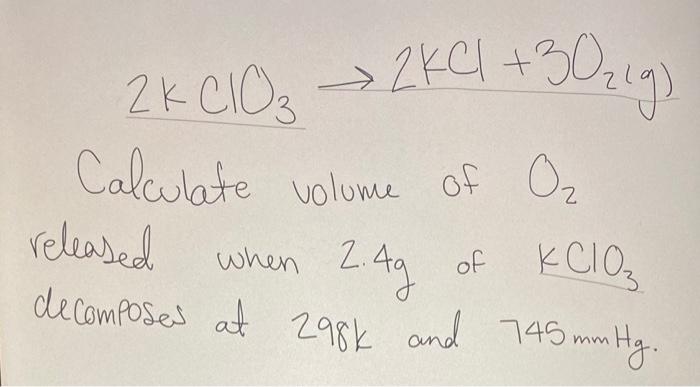 2K ClO₃ → 2KCl + 3O₂(g)
Calculate volume of O₂
released when 2.4g of KClO₃
decomposes at 298k and 745 mmHg.